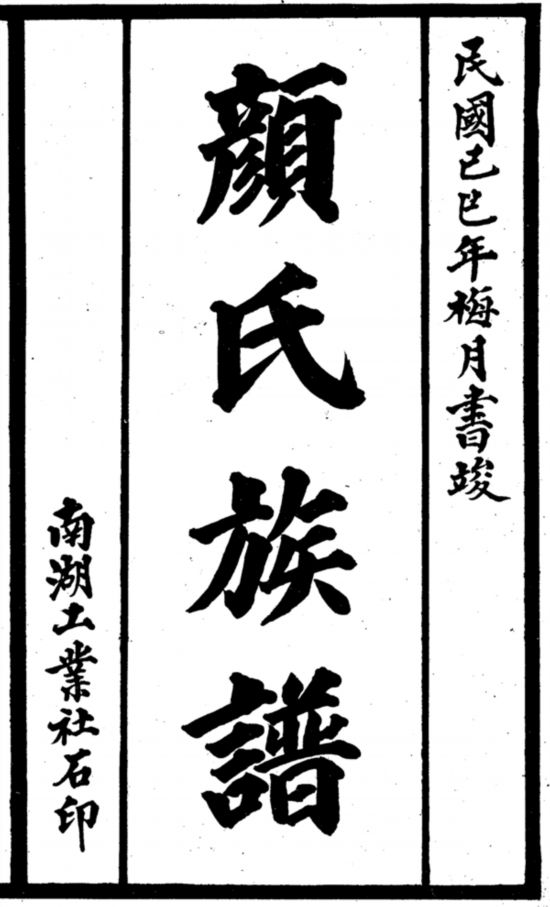 民國己巳年梅月書竣
顏氏族譜
南湖工業社石印